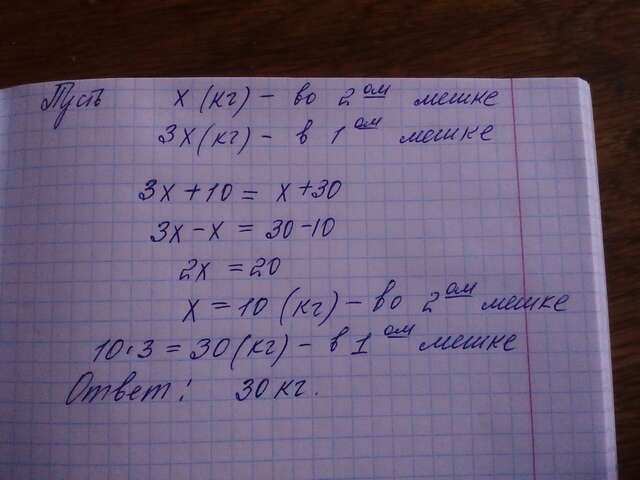 Пусть x (кг) - во 2 ом мешке
3x (кг) - в 1 ом мешке
3x + 10 = x + 30
3x - x = 30 - 10
2x = 20
x = 10 (кг) - во 2 ом мешке
10 · 3 = 30 (кг) - в 1 ом мешке
Ответ: 30 кг.